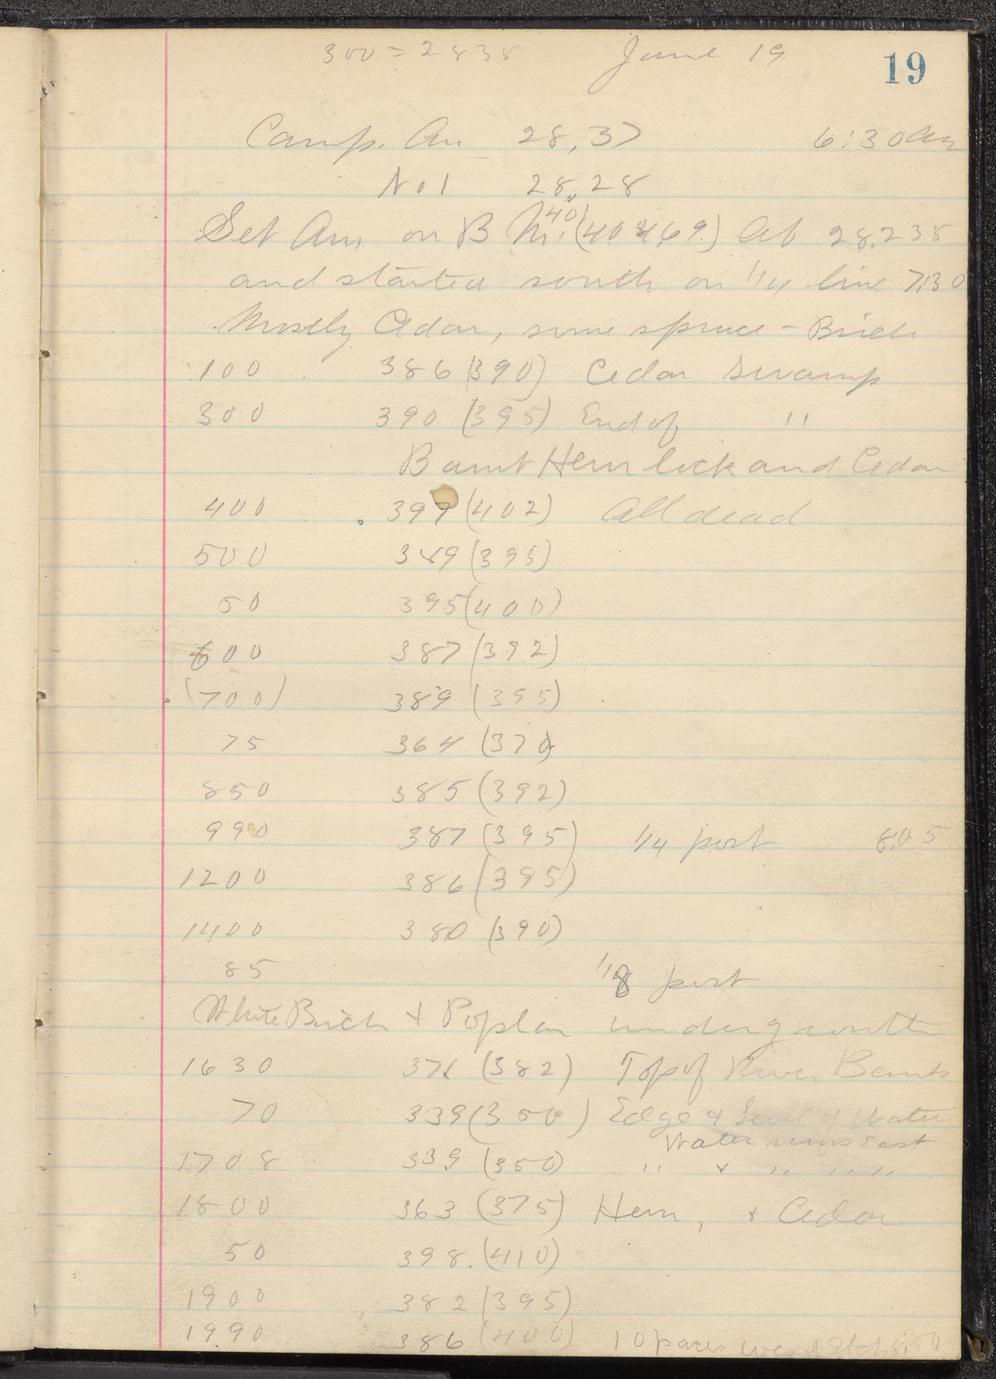 300 = 2838 June 19 19
Camp. An 28,37 6:30 am
No 1 28,28
Set Ann on B M. (40469) at 28.235
40
and started south on 1/4 line 7:30
Mostly Cedar, some spruce - Birch
100 386 (390) Cedar Swamp
300 390 (395) End of "
Burnt Hemlock and Cedar
400 399 (402) All dead
500 389 (395)
50 395 (400)
600 387 (392)
(700) 389 (395)
75 364 (370)
850 385 (392)
990 387 (395) 1/4 post 8.05
1200 386 (395)
1400 380 (390)
85 1/8 post
White Birch + Poplar undergrowth
1630 371 (382) Top of River Bank
70 339 (350) Edge & Level of Water
Water runs East
1708 339 (350) " & " " " "
1800 363 (375) Hem, & Cedar
50 398. (410)
1900 382 (395)
1990 386 (400) 10 paces west